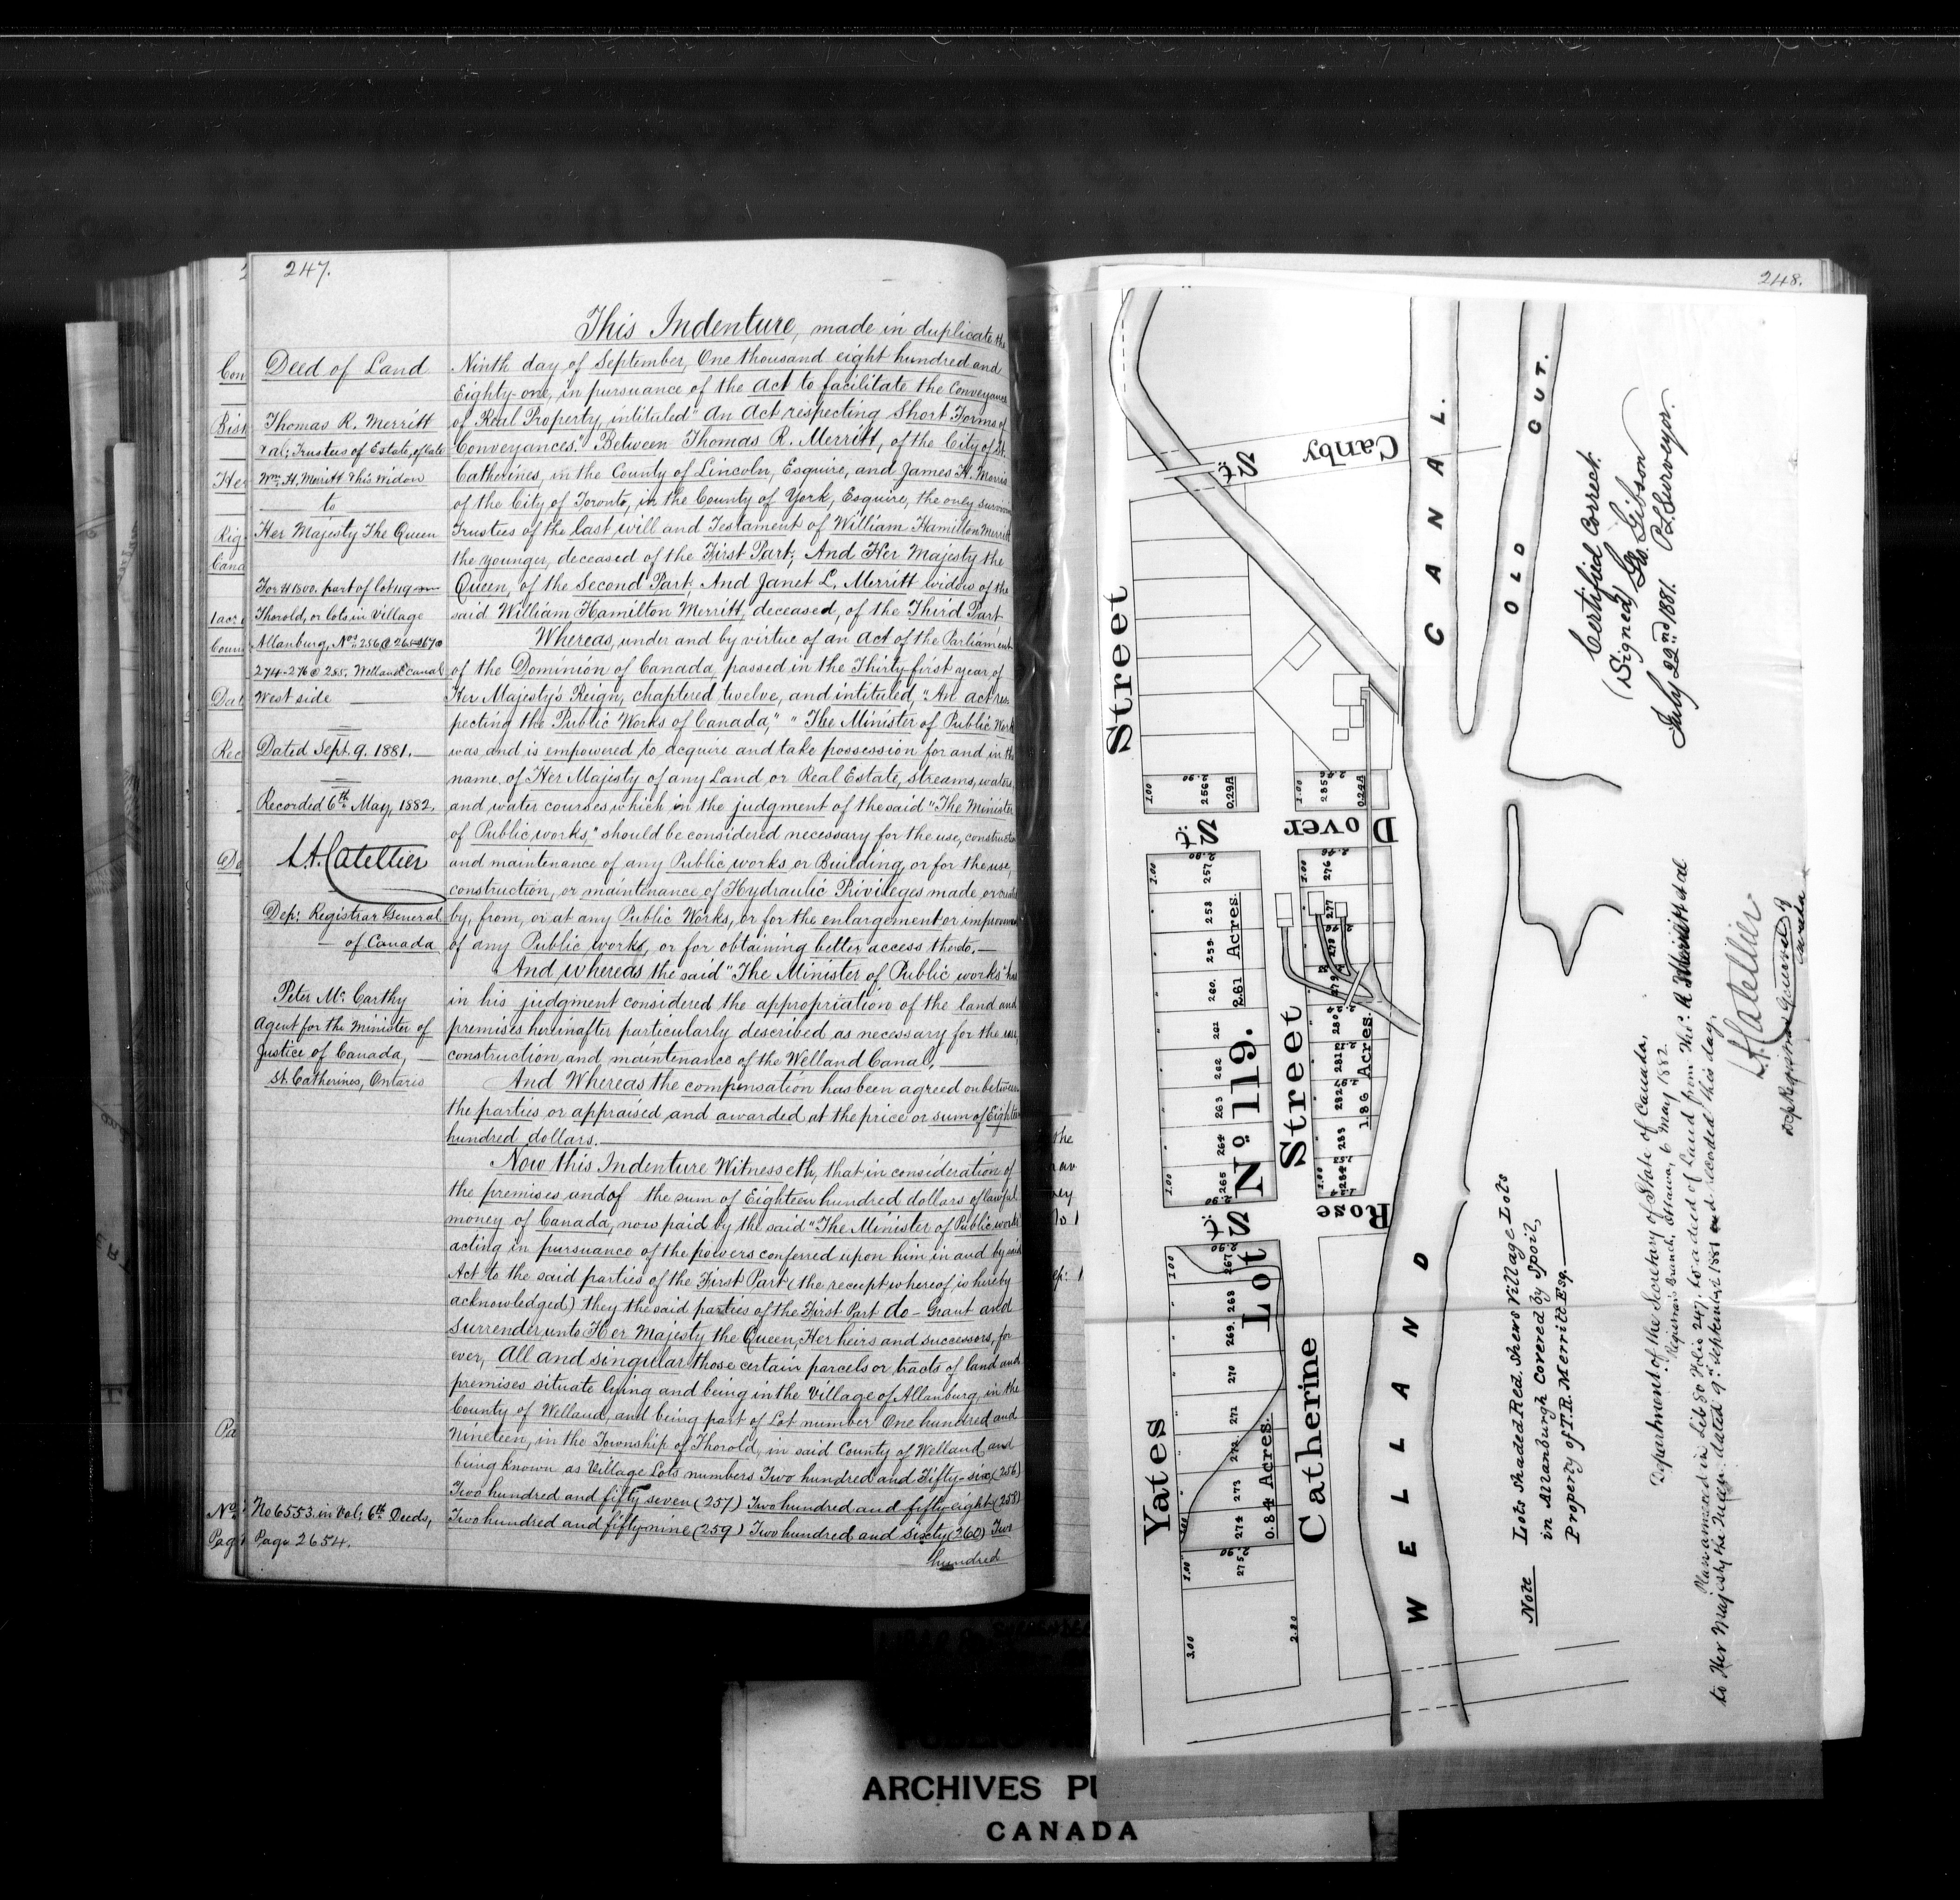 247.
Deed of Land
Thomas R. Merritt
& al; Trustees of Estate, of late
Wm. H. Merritt & his Widow
to
Her Majesty The Queen
For $1800. part of lot 119 in
Thorold, or lots in Village
Allanburg, Nos 256 @ 265
274-276 @ 285. Welland Canal
West side
Dated Sept. 9. 1881.
Recorded 6th May, 1882.
L.A. Catellier
Dep: Registrar General
of Canada
Peter Mc Carthy
Agent for the Minister of
Justice of Canada,
St. Catherines, Ontario
No 6553 in Vol: 6th Deeds,
Page 2654.
This Indenture, made in duplicate the
Ninth day of September, One thousand eight hundred and
Eighty-one, in pursuance of the Act to facilitate the Conveyance
of Real Property, intituled "An Act respecting Short Forms of
Conveyances." Between Thomas R. Merritt, of the City of St.
Catherines, in the County of Lincoln, Esquire, and James H. Morris
of the City of Toronto, in the County of York, Esquire, the only surviving
Trustees of the last will and Testament of William Hamilton Merritt
the younger, deceased of the First Part; And Her Majesty the
Queen, of the Second Part, And Janet L. Merritt widow of the
said William Hamilton Merritt, deceased, of the Third Part
Whereas, under and by virtue of an Act of the Parliament
of the Dominion of Canada, passed in the Thirty-first year of
Her Majesty's Reign, chaptered twelve, and intituled, "An act res-
pecting the Public Works of Canada," "The Minister of Public Works
was and is empowered to acquire and take possession for and in the
name of Her Majesty of any Land or Real Estate, streams, waters,
and water courses which in the judgment of the said "The Minister
of Public works," should be considered necessary for the use, construction
and maintenance of any Public works or Building, or for the use,
construction, or maintenance of Hydraulic Privileges made or created
by, from, or at any Public Works, or for the enlargement or improvement
of any Public works, or for obtaining better access thereto.—
And whereas the said "The Minister of Public works" has
in his judgment considered the appropriation of the land and
premises hereinafter particularly described as necessary for the use,
construction, and maintenance of the Welland Canal.
And Whereas the compensation has been agreed on between
the parties or appraised and awarded at the price or sum of Eighteen
hundred dollars.
Now this Indenture Witnesseth, that in consideration of
the premises and of the sum of Eighteen hundred dollars of lawful
money of Canada, now paid by the said "The Minister of Public works
acting in pursuance of the powers conferred upon him in and by said
Act to the said parties of the First Part (the receipt whereof is hereby
acknowledged) they the said parties of the First Part do - Grant and
Surrender unto Her Majesty the Queen, Her heirs and successors, for
ever, All and singular those certain parcels or tracts of land and
premises situate lying and being in the Village of Allanburg, in the
County of Welland, and being part of Lot number One hundred and
Nineteen, in the Township of Thorold, in said County of Welland and
being known as Village Lots numbers Two hundred and Fifty-six (256)
Two hundred and fifty seven (257) Two hundred and fifty-eight (258)
Two hundred and fifty-nine (259) Two hundred and sixty (260) Two
hundred
248.
Yates Street
Catherine Street
Lot No 119.
Canby St.
Dover St.
Rose St.
WELLAND CANAL.
OLD CUT.
1.00
256
0.29A
285
0.24A
257
258
259
260
261
262
263
264
265
2.61 Acres.
276
277
278
279
280
281
282
283
284
1.86 Acres.
267
268
269
270
272
273
274
275
0.84 Acres.
3.00
2.80
Certified Correct.
(Signed) Geo. Gibson
July 22nd 1881. P.L. Surveyor.
Note Lots Shaded Red. Shews Village Lots
in Allanburgh Covered by Spoil,
Property of T.R. Merritt Esq.
Department of the Secretary of State of Canada.
Registrar's Branch, Ottawa, 6 May 1882.
Plan annexed in Lib 80 Folio 247. to a deed of Land from Thos. R Merritt et al
to Her Majesty the Queen. dated 9th September 1881 and recorded this day.
L.A. Catellier
Dep Registrar General of
Canada
ARCHIVES PU
CANADA